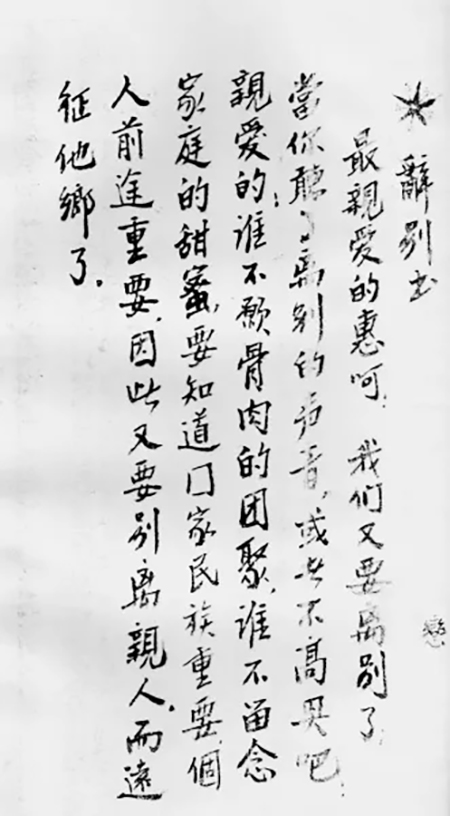 ★ 辭别书
最親爱的惠呵，我们又要离别了，
當你聽了离别的声音，或者不高兴吧：
親爱的：谁不願骨肉的团聚，谁不畄念
家庭的甜蜜，要知道囗家民族重要，個
人前途重要，因此又要别离親人，而遠
征他鄉了．
戀